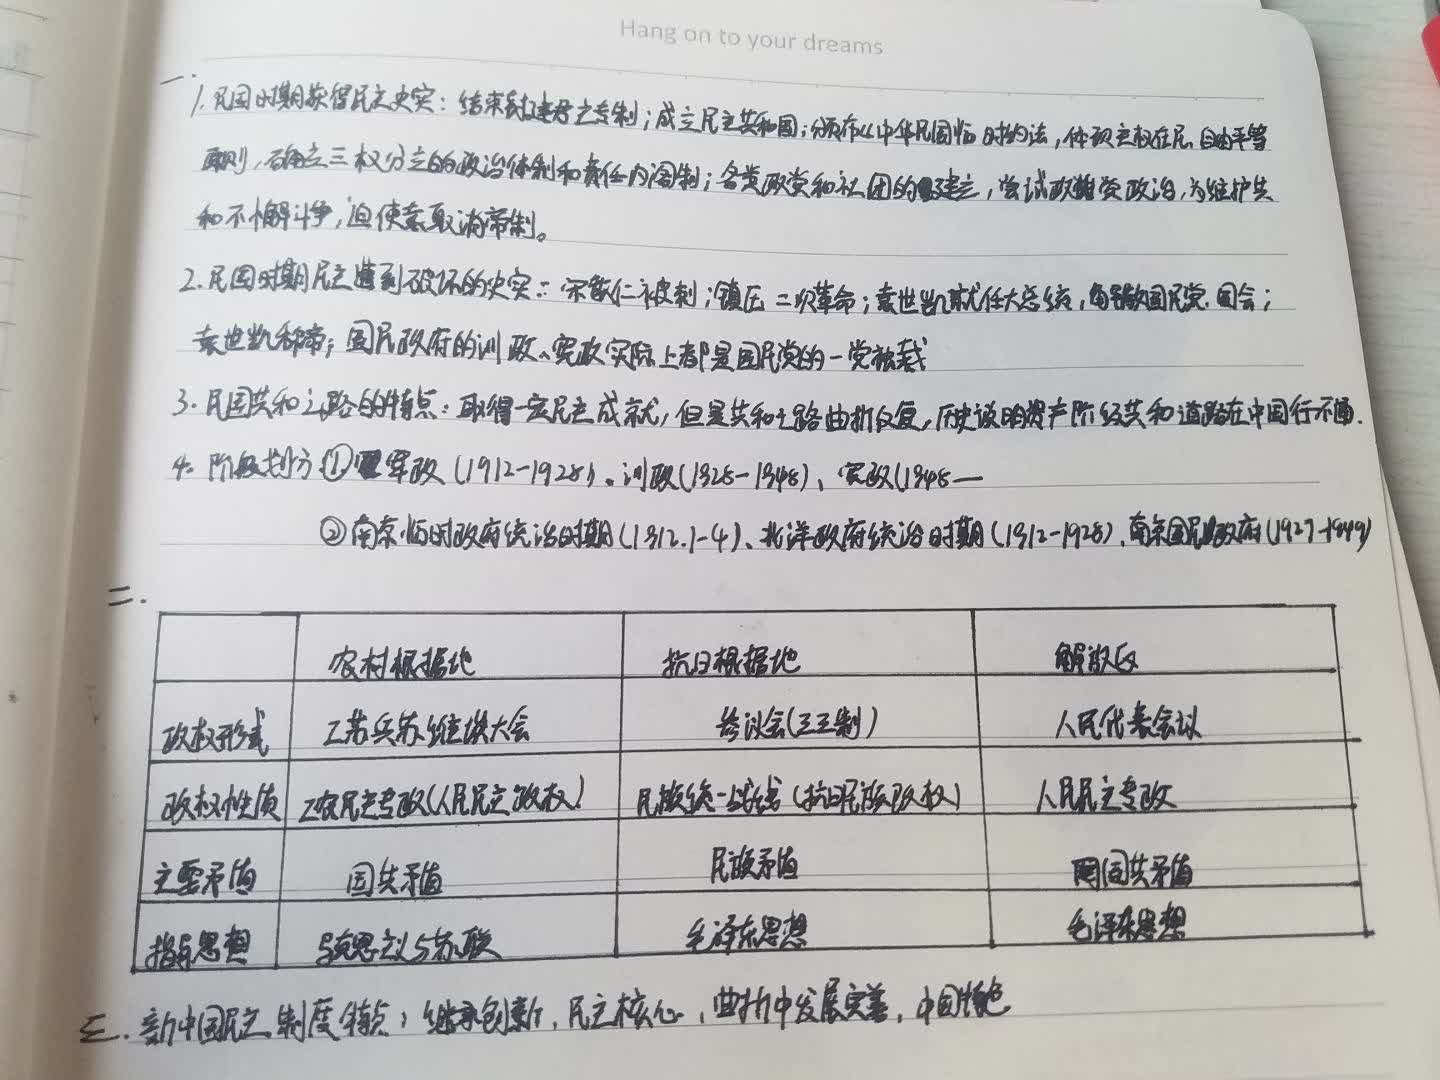 Hang on to your dreams
一.
1.民国时期获得民主史实：结束封建君主专制；成立民主共和国；颁布《中华民国临时约法，体现主权在民、自由平等
原则，确立三权分立的政治体制和责任内阁制；各类政党和社团的建立，尝试政党政治，为维护共
和不懈斗争，迫使袁取消帝制。
2.民国时期民主遭到破坏的史实：宋教仁被刺；镇压二次革命；袁世凯就任大总统，解散国民党、国会；
袁世凯称帝；国民政府的训政、宪政实际上都是国民党的一党独裁
3.民国共和之路的特点：取得一定民主成就，但是共和之路曲折反复，历史说明资产阶级共和道路在中国行不通.
4.阶段划分①军政（1912-1928）、训政（1928-1948）、宪政（1948—
②南京临时政府统治时期（1912.1-4）、北洋政府统治时期（1912-1928）、南京国民政府（1927-1949）
二.
农村根据地 抗日根据地 解放区
政权形式 工苏兵苏维埃大会 参议会（三三制） 人民代表会议
政权性质 工农民主专政（人民民主政权） 民族统一战线（抗日民族政权） 人民民主专政
主要矛盾 国共矛盾 民族矛盾 国共矛盾
指导思想 马克思主义与苏联 毛泽东思想 毛泽东思想
三.新中国民主制度特点：继承创新，民主核心，曲折中发展完善，中国特色